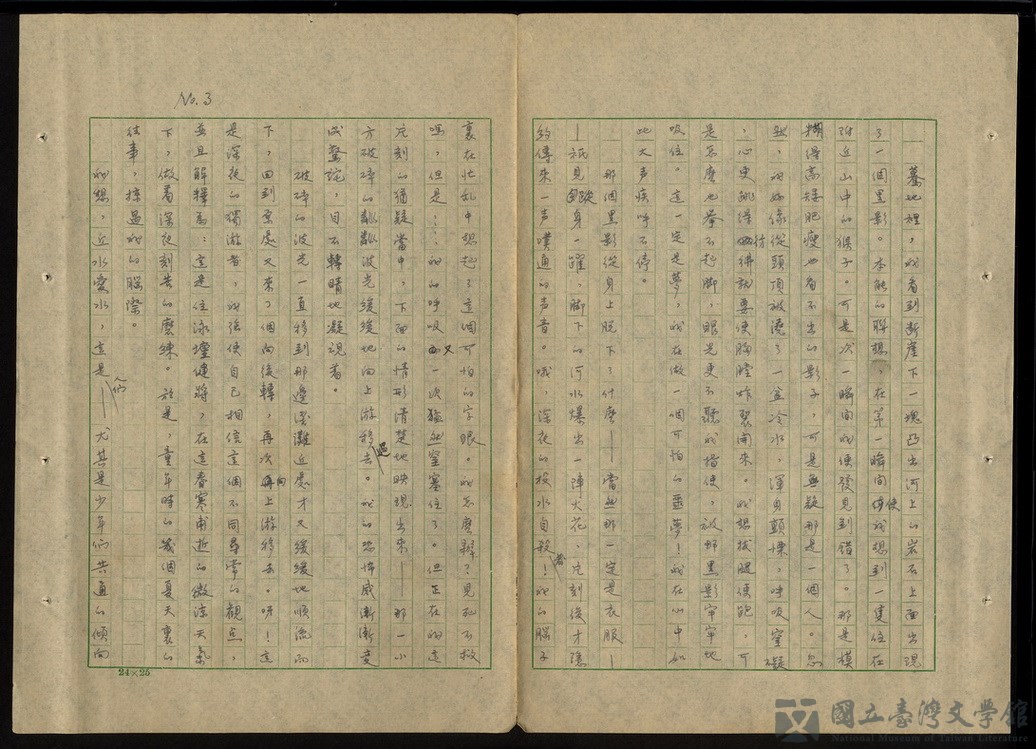 No. 3
驀地裡，我看到斷崖下一塊凸出河上的岩石上面出現
了一個黑影。本能的聯想，在第一瞬間使我想到一隻住在
附近山中的猴子。可是次一瞬間我便發見到錯了。那是模
糊得高矮肥瘦也看不出的影子，可是無疑那是一個人。忽
然，我好像從頭頂被澆了一盆冷水，渾身顫慄，呼吸窒礙
，心更跳得彷彿就要使胸膛炸裂開來。我想拔腿便跑，可
是怎麼也拳不起脚，眼光更不聽我指使，被那黑影牢牢地
吸住。這一定是夢，我在做一個可怕的噩夢！我在心中如
此大声疾呼不停。
那個黑影從身上脫下了什麼——當然那一定是衣服—
—祇見縱身一躍，脚下的河水爆出一陣大花，片刻後才隱
約傳來一声噗通的声音。哦，深夜的投水自殺者！我的腦子
裏在壯乱中想起了這個可怕的字眼。我怎麼辦？見死不救
嗎，但是……我的呼吸又一次猛然窒塞住了。但正在我這
片刻的猶疑當中，下面的情形清楚地映現出來——那一小
方破碎的粼粼波光緩緩地向上游移過去。我的恐怖感漸漸變
成驚詫，目不轉睛地凝視着。
破碎的波光一直移到那邊淺灘近處才又緩緩地順流而
下，回到原處又來了個向後轉，再次向上游移去。呀！這
是深夜的獨游者，我強使自己相信這個不同尋常的觀点，
並且解釋為：這是位泳壇健將，在這春寒甫逝的微涼天氣
下，做着深夜刻苦的磨練。於是，童年時的幾個夏天裏的
往事，掠過我的腦際。
我想，近水愛水，這是人們——尤其是少年們共通的傾向
24×25
國立臺灣文學館
National Museum of Taiwan Literature